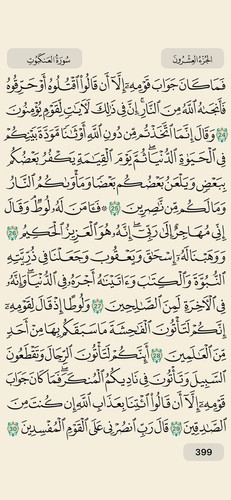 الجزء العشرون
سورة العنكبوت
فَمَا كَانَ جَوَابَ قَوْمِهِۦٓ إِلَّآ أَن قَالُوا۟ ٱقْتُلُوهُ أَوْ حَرِّقُوهُ
فَأَنجَىٰهُ ٱللَّهُ مِنَ ٱلنَّارِ ۚ إِنَّ فِى ذَٰلِكَ لَءَايَٰتٍ لِّقَوْمٍ يُؤْمِنُونَ
24 وَقَالَ إِنَّمَا ٱتَّخَذْتُم مِّن دُونِ ٱللَّهِ أَوْثَٰنًا مَّوَدَّةَ بَيْنِكُمْ
فِى ٱلْحَيَوٰةِ ٱلدُّنْيَا ۖ ثُمَّ يَوْمَ ٱلْقِيَٰمَةِ يَكْفُرُ بَعْضُكُم
بِبَعْضٍ وَيَلْعَنُ بَعْضُكُم بَعْضًا وَمَأْوَىٰكُمُ ٱلنَّارُ
وَمَا لَكُم مِّن نَّٰصِرِينَ 25 ۞ فَـَٔامَنَ لَهُۥ لُوطٌ ۘ وَقَالَ
إِنِّى مُهَاجِرٌ إِلَىٰ رَبِّىٓ ۖ إِنَّهُۥ هُوَ ٱلْعَزِيزُ ٱلْحَكِيمُ 26
وَوَهَبْنَا لَهُۥٓ إِسْحَٰقَ وَيَعْقُوبَ وَجَعَلْنَا فِى ذُرِّيَّتِهِ
ٱلنُّبُوَّةَ وَٱلْكِتَٰبَ وَءَاتَيْنَٰهُ أَجْرَهُۥ فِى ٱلدُّنْيَا ۖ وَإِنَّهُۥ
فِى ٱلْءَاخِرَةِ لَمِنَ ٱلصَّٰلِحِينَ 27 وَلُوطًا إِذْ قَالَ لِقَوْمِهِۦٓ
إِنَّكُمْ لَتَأْتُونَ ٱلْفَٰحِشَةَ مَا سَبَقَكُم بِهَا مِنْ أَحَدٍ
مِّنَ ٱلْعَٰلَمِينَ 28 أَئِنَّكُمْ لَتَأْتُونَ ٱلرِّجَالَ وَتَقْطَعُونَ
ٱلسَّبِيلَ وَتَأْتُونَ فِى نَادِيكُمُ ٱلْمُنكَرَ ۖ فَمَا كَانَ جَوَابَ
قَوْمِهِۦٓ إِلَّآ أَن قَالُوا۟ ٱئْتِنَا بِعَذَابِ ٱللَّهِ إِن كُنتَ مِنَ
ٱلصَّٰدِقِينَ 29 قَالَ رَبِّ ٱنصُرْنِى عَلَى ٱلْقَوْمِ ٱلْمُفْسِدِينَ 30
399